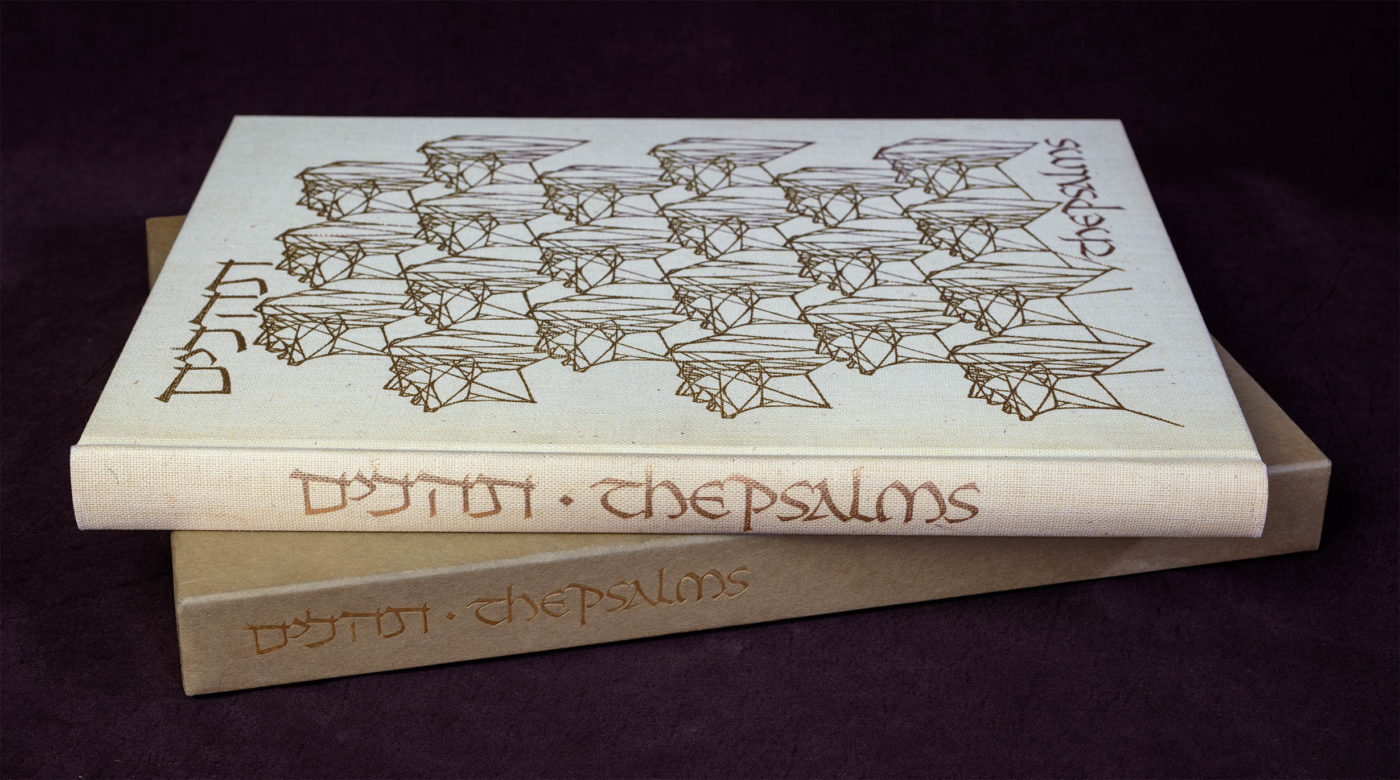 תהלים
the psalms
תהלים · the psalms
תהלים · the psalms